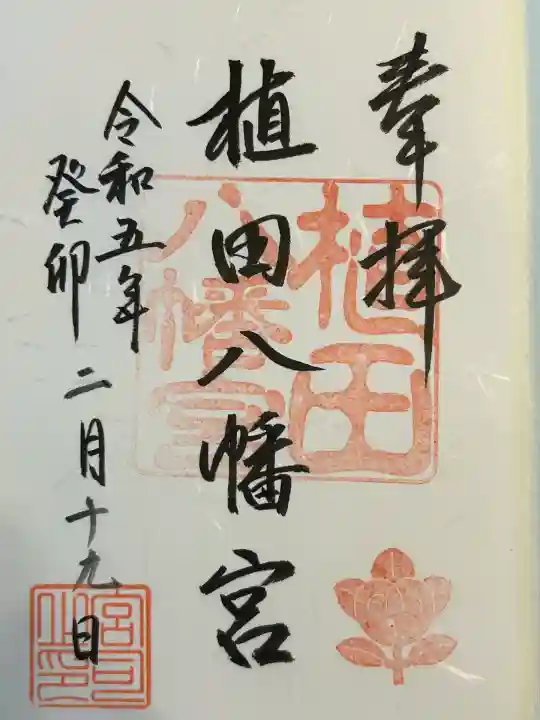 奉拝
植田八幡宮
令和五年
癸卯
二月十九日
植田
八幡宮
宮司
之印